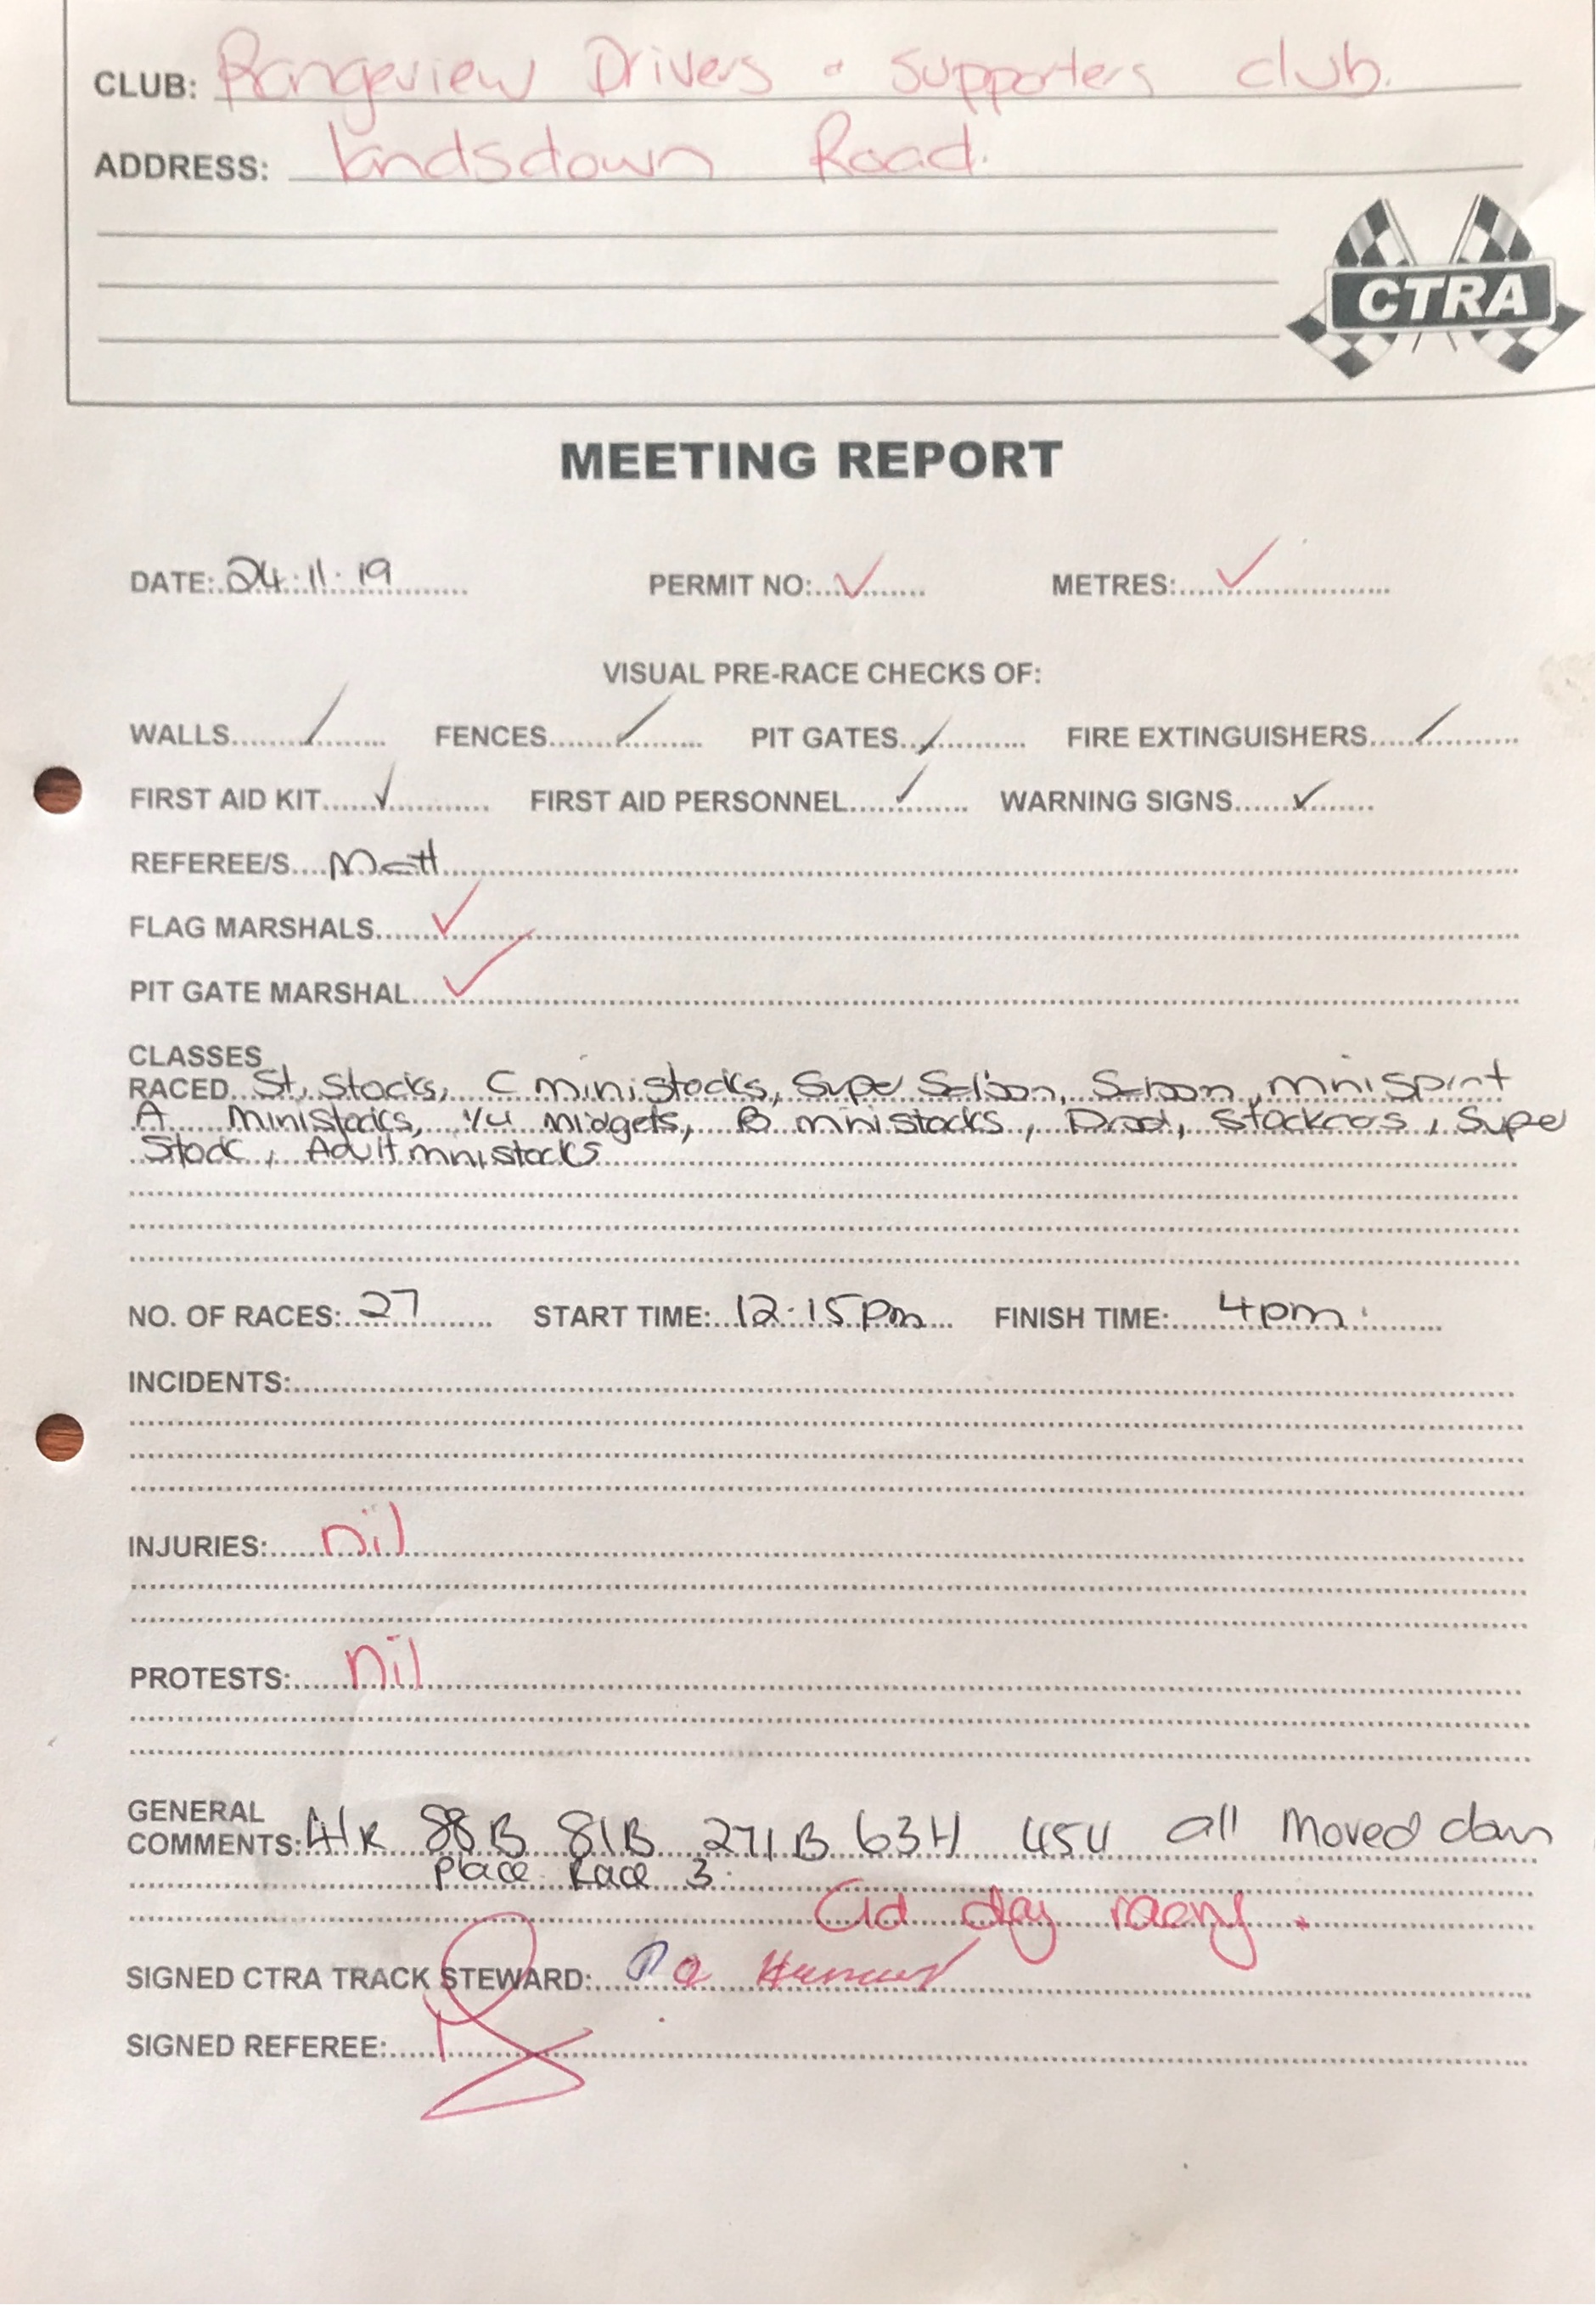 CLUB: Rangeview Drivers & Supporters club.
ADDRESS: Landsdown Road.
CTRA
MEETING REPORT
DATE: 24.11.19 PERMIT NO: ✓ METRES: ✓
VISUAL PRE-RACE CHECKS OF:
WALLS ✓ FENCES ✓ PIT GATES ✓ FIRE EXTINGUISHERS ✓
FIRST AID KIT ✓ FIRST AID PERSONNEL ✓ WARNING SIGNS ✓
REFEREE/S Matt
FLAG MARSHALS ✓
PIT GATE MARSHAL ✓
CLASSES
RACED St, Stocks, C ministocks, Supe Saloon, Saloon, mnisprint
A Ministocks, 1/4 Midgets, B mnistocks, Prod, Stockcars, Supe
Stock, Adult mnistocks
NO. OF RACES: 27 START TIME: 12.15pm FINISH TIME: 4pm
INCIDENTS:
INJURIES: nil
PROTESTS: nil
GENERAL
COMMENTS: 41R 88B 81B 271B 63H 45U all moved down
Place Race 3
day
SIGNED CTRA TRACK STEWARD:
SIGNED REFEREE: